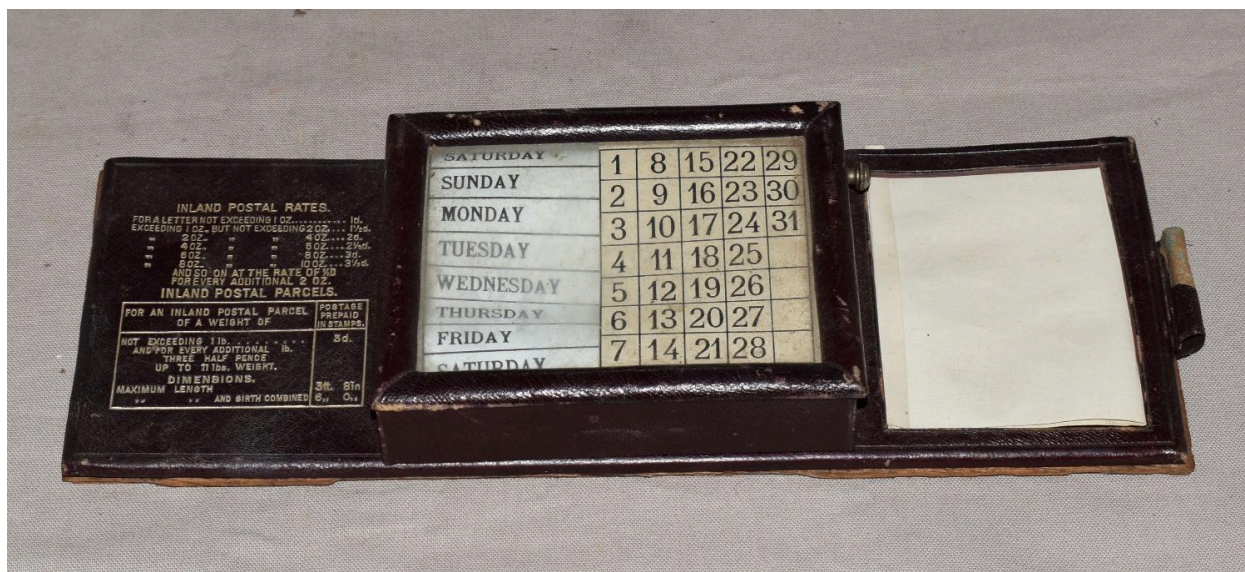 INLAND POSTAL RATES.
FOR A LETTER NOT EXCEEDING 1 OZ........... 1d.
EXCEEDING 1 OZ., BUT NOT EXCEEDING 2 OZ.... 1½d.
„ 2 OZ., „ „ 4 OZ.... 2d.
„ 4 OZ., „ „ 6 OZ.... 2½d.
„ 6 OZ., „ „ 8 OZ.... 3d.
„ 8 OZ., „ „ 10 OZ... 3½d.
AND SO ON AT THE RATE OF ½D
FOR EVERY ADDITIONAL 2 OZ.
INLAND POSTAL PARCELS.
FOR AN INLAND POSTAL PARCEL
OF A WEIGHT OF
POSTAGE
PREPAID
IN STAMPS.
NOT EXCEEDING 1 lb. ......... 3d.
AND FOR EVERY ADDITIONAL lb.
THREE HALF PENCE
UP TO 11 lbs. WEIGHT.
DIMENSIONS.
MAXIMUM LENGTH 3ft. 6in
„ „ AND GIRTH COMBINED 6„ 0„
SATURDAY
SUNDAY
MONDAY
TUESDAY
WEDNESDAY
THURSDAY
FRIDAY
SATURDAY
1 8 15 22 29
2 9 16 23 30
3 10 17 24 31
4 11 18 25
5 12 19 26
6 13 20 27
7 14 21 28